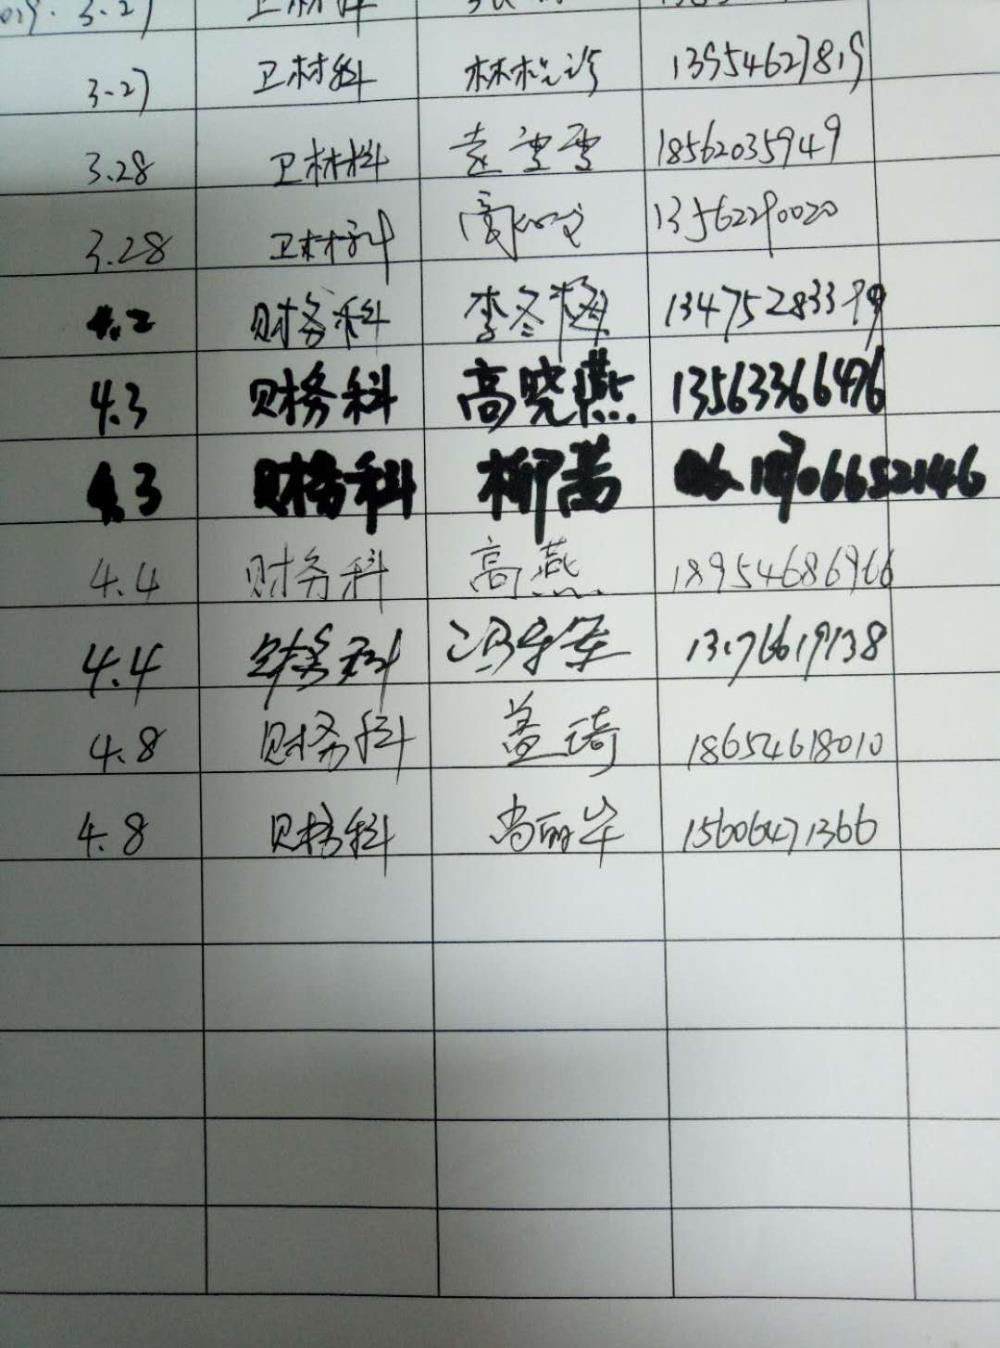 2019. 3.27 卫材科
3.27 卫材科 林 13954627819
3.28 卫材科 袁雪雪 18562035949
3.28 卫材科 13562290020
4.2 财务科 李冬梅 134752833
4.3 财务科 高晓燕 13563366476
4.3 财务科 柳茜 06652146
4.4 财务科 高燕 18954686966
4.4 财务科 冯 13176619138
4.8 财务科 盖琦 18654618010
4.8 财务科 尚丽华 15606471366